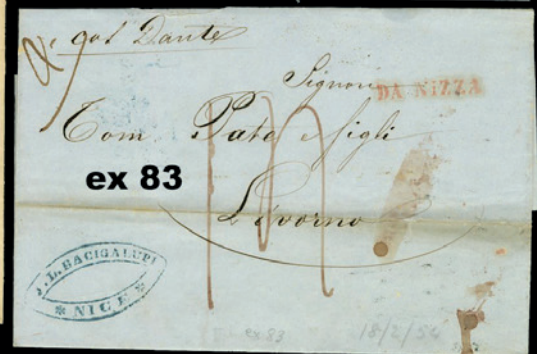 Dante
Signori
DA NIZZA
Tom Pate e figli
ex 83
Livorno
J. L. BACIGALUPI
* NICE *
ex 83
18/2/54